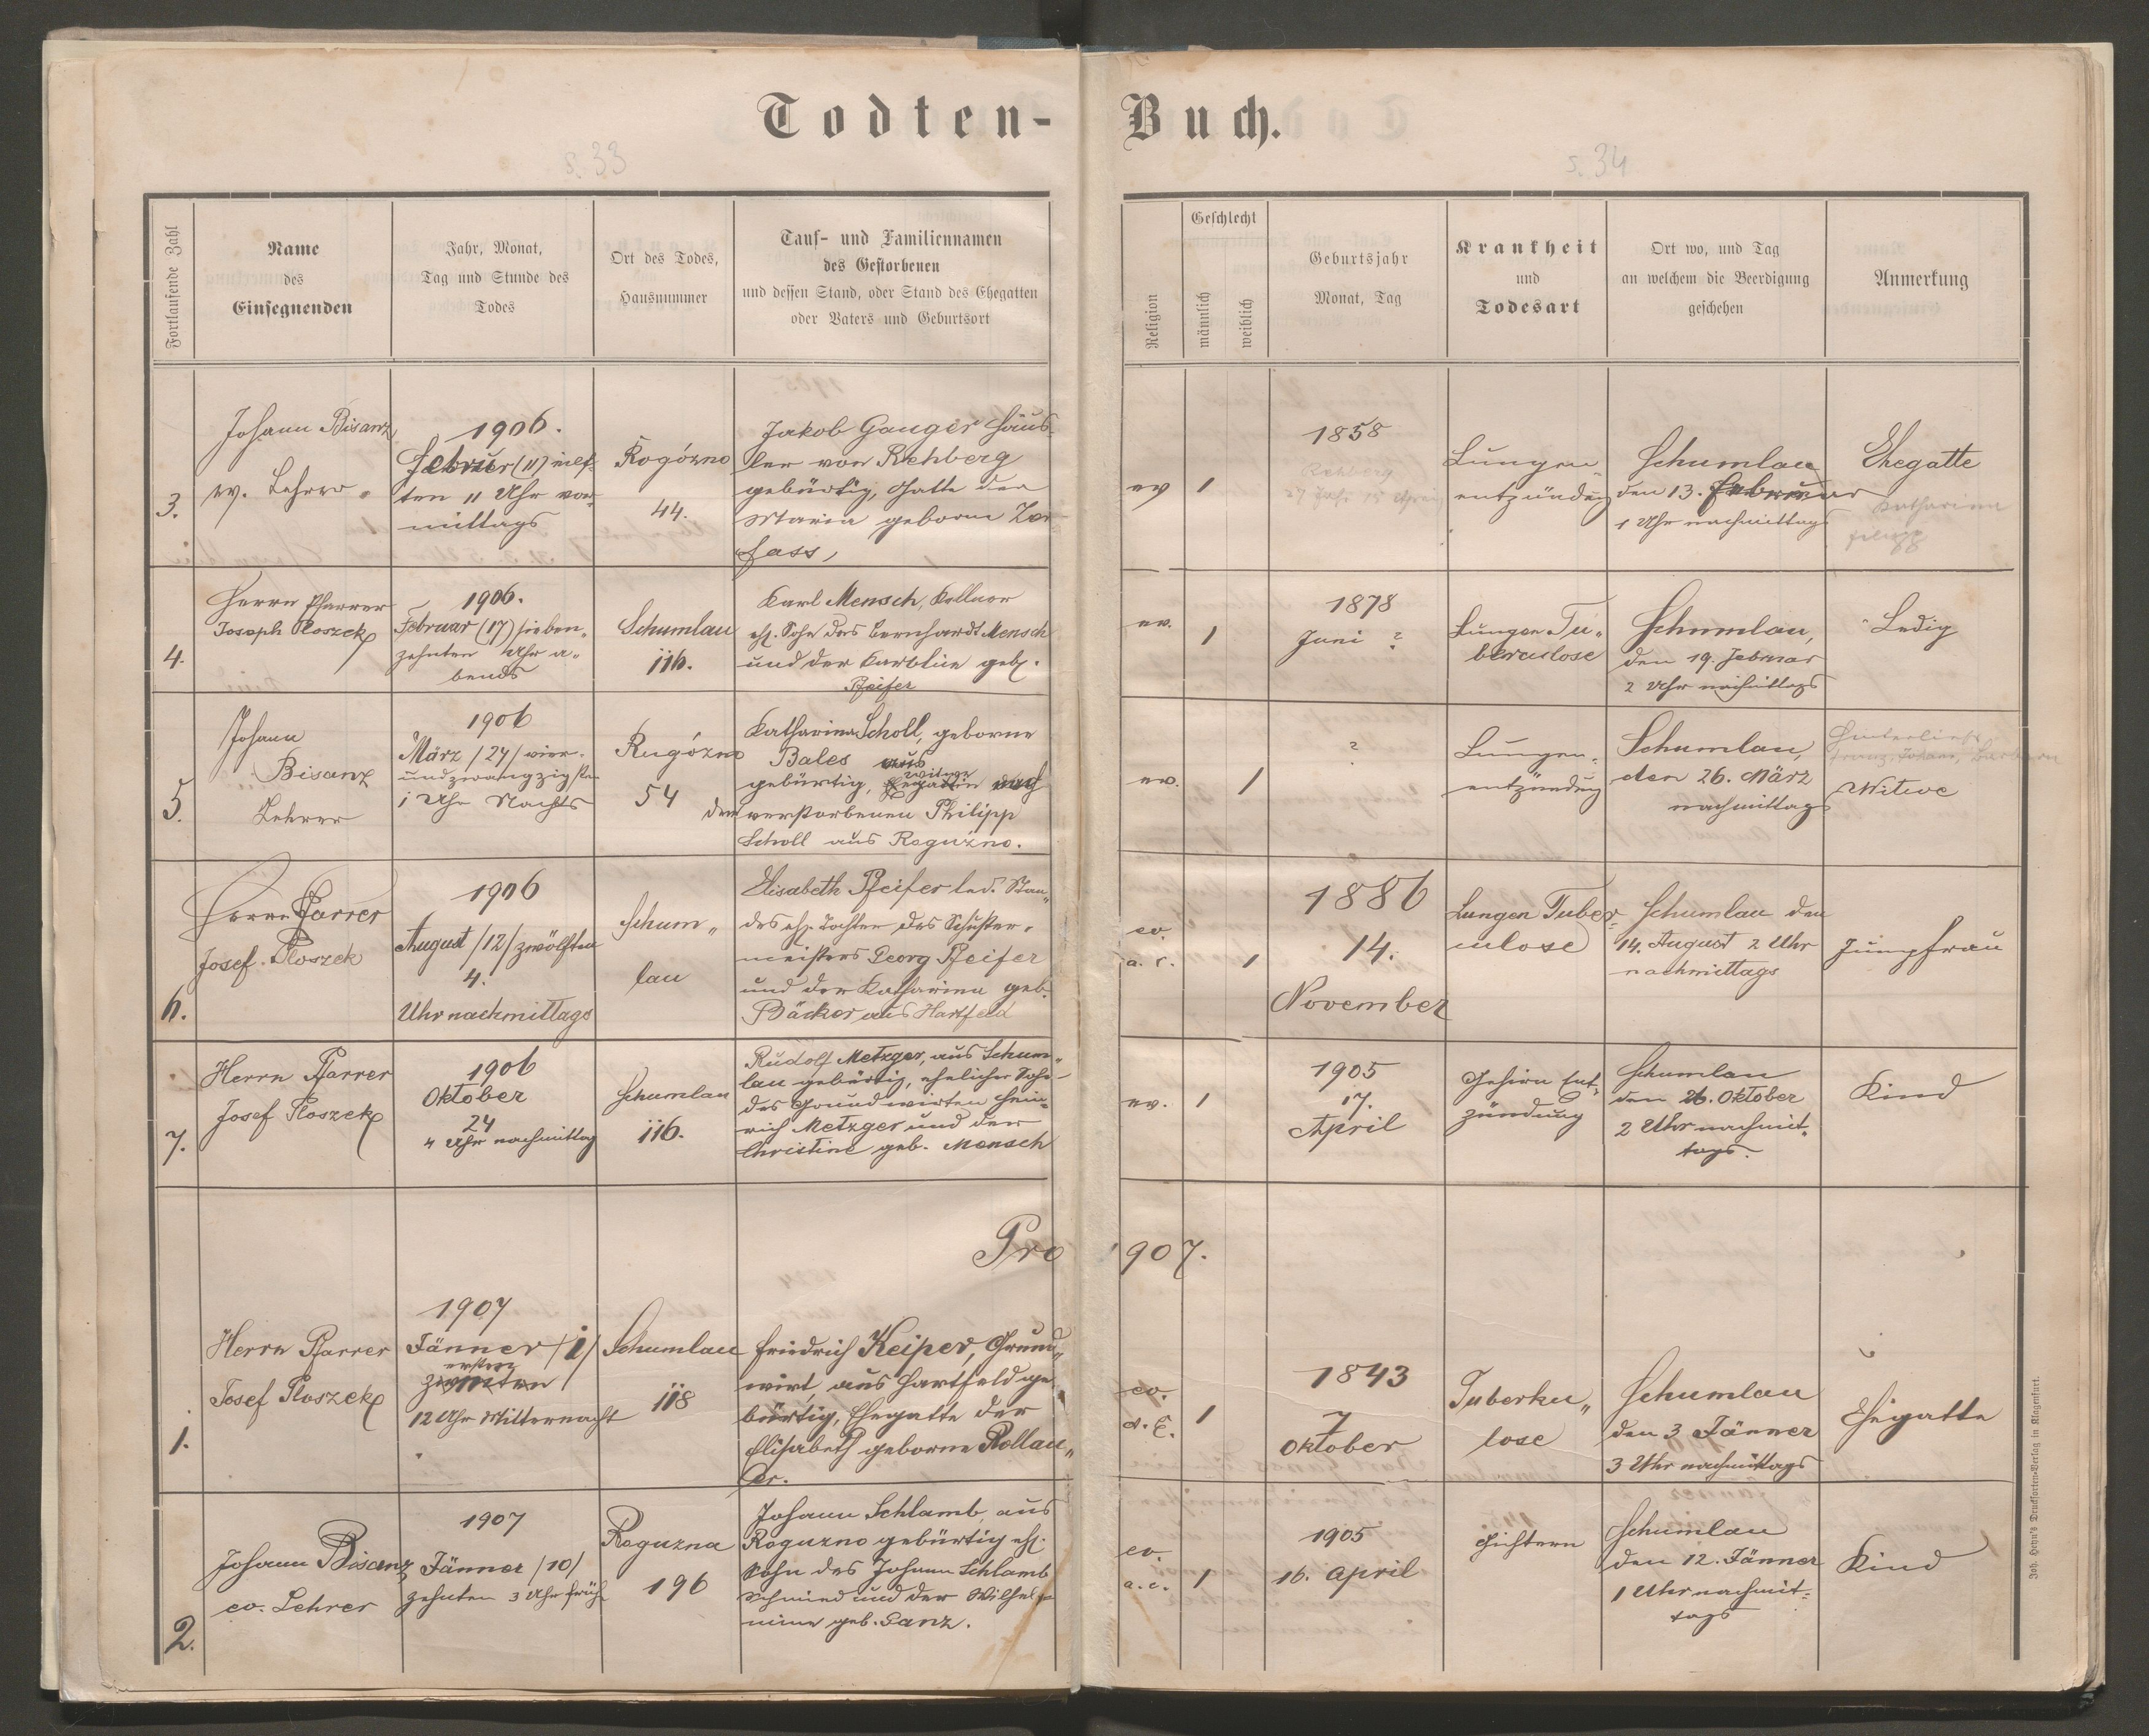 Todten-
Buch.
s. 33
s. 34
Fortlaufende Zahl
Name
des
Einsegnenden
Jahr, Monat,
Tag und Stunde des
Todes
Ort des Todes,
Hausnummer
Tauf- und Familiennamen
des Gestorbenen
und dessen Stand, oder Stand des Ehegatten
oder Vaters und Geburtsort
Religion
Geschlecht
männlich
weiblich
Geburtsjahr
Monat, Tag
Krankheit
und
Todesart
Ort wo, und Tag
an welchem die Beerdigung
geschehen
Anmerkung
3.
Johann Bisanz
ev. Lehrer
1906.
Februer (11) eilf-
ten 11 Uhr vor-
mittags
Rogózno
44.
Jakob Gauger Häus-
ler von Rehberg
gebürtig, Gatte der
Maria geborne
fass,
ev
1
1858
Rehberg
Lungen-
entzündung
Schumlau
den 13. Februar
1 Uhr nachmittags
Ehegatte
Katharina
Filipp
4.
Herrn Pfarrer
Joseph Ploszek
1906.
Februar (17) sieben-
zehnten Uhr a-
bends
Schumlau
116.
Karl Mensch, Kellner
ehl. Sohn des Bernhardt Mensch
und der Karoline geb.
Pfeifer
ev.
1
1878
Juni ?
Lungen Tu-
berculose
Schumlau,
den 19. Februar
2 Uhr nachmittags
Ledig
5.
Johann
Bisanz
Lehrer
1906
März /24/ vier-
undzwanzigsten
1 Uhr Nachts
Rogózno
54
Katharina Scholl, geborne
Bales aus
gebürtig, Witwe nach
dem verstorbenen Philipp
Scholl aus Roguzno.
ev.
1
?
Lungen-
entzündung
Schumlau,
den 26. März
nachmittags
Hinterließ
Franz, Johann, Barbara
Witwe
6.
Herrn Pfarrer
Josef Ploszek
1906
August /12/ zwölften
4.
Uhr nachmittags
Schum-
lau
Elisabeth Pfeifer led. Stan-
des ehl. Tochter des Schuster-
meisters Georg Pfeifer
und der Katharina geb.
Bäcker aus Hartfeld
ev.
a. c.
1
1886
14.
November
Lungen Tuber-
culose
Schumlau den
14. August 2 Uhr
nachmittags
Jungfrau
7.
Herrn Pfarrer
Josef Ploszek
1906
Oktober
24
4 Uhr nachmittag
Schumlau
116.
Rudolf Metzger, aus Schum-
lau gebürtig, ehelicher Sohn
des Grundwirten Hein-
rich Metzger und der
Christine geb. Mensch
ev.
1
1905
17.
April
Gehirn Ent-
zündung
Schumlau
den 26. Oktober
2 Uhr nachmit-
tags.
Kind
Pro 1907.
1.
Herrn Pfarrer
Josef Ploszek
1907
Jänner /1/
ersten
zweiten
12 Uhr Mitternacht
Schumlau
118
Friedrich Keiper, Grund-
wirt, aus Hartfeld ge-
bürtig, Ehegatte der
Elisabeth geborne Rollau-
er.
ev.
a. C.
1
1843
7
Oktober
Tuberku-
lose
Schumlau
den 3 Jänner
3 Uhr nachmittags
Ehegatte
2.
Johann Bisanz
ev. Lehrer
1907
Jänner /10/
zehnten 3 Uhr früh
Roguzna
196
Johann Schlamb, aus
Roguzno gebürtig ehl.
Sohn des Johann Schlamb
Schmied und der Wilhel-
mine geb. Ganz.
ev.
a. c.
1
1905
16. April
Schumlau
den 12. Jänner
1 Uhr nachmit-
tags
Kind
Joh. Heyn's Drucksorten-Verlag in Klagenfurt.